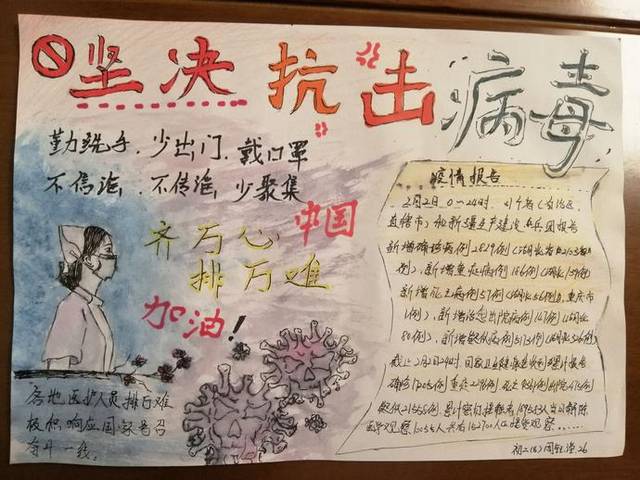 坚决抗击病毒
勤洗手.少出门.戴口罩
不信谣.不传谣.少聚集
中国
齐万心
排万难
加油!
各地医护人员排万难
极积响应国家号召
奋斗一线。
疫情报告
2月2日0—24时,31个省(自治区
直辖市)和新疆生产建设兵团报告
新增确诊病例2829例(湖北省2103
例),新增重症病例186例(湖北139例)
新增死亡病例57例(湖北56例,重庆市
1例),新增治愈出院病例147例(湖北
80例),新增疑似病例5173例
截止2月2日24时,国家卫健委收到累计报告
确诊17205例 重症2296例
疑似21558例,累计密切接触者189583人,当日解除
医学观察10055人,共有152700人
初二